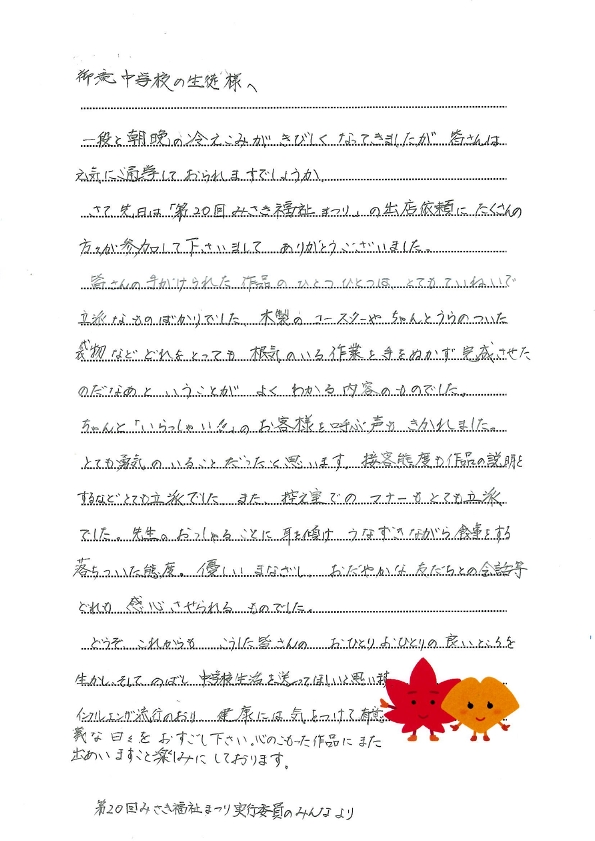 中学校の生徒様へ
一段と朝晩の冷えこみがきびしくなってきましたが 皆さんは
元気にご通学しておられますでしょうか。
さて先日は「第20回みさき福祉まつり」の出店依頼にたくさんの
方々が参加して下さいまして ありがとうございました。
皆さんの手がけられた 作品の ひとつひとつは、とてもていねいで
立派なものばかりでした。木製の コースターや ちゃんとうらのついた
袋物など どれをとっても 根気のいる作業を手をぬかず完成させた
のだなあと いうことが よく わかる内容のものでした。
ちゃんと「いらっしゃいませ」のお客様を呼ぶ声も きかれました。
とても勇気の いることだったと思います。接客態度も作品の説明を
するなどとても立派でした。また、控え室での マナーもとても立派
でした。先生の おっしゃることに 耳を傾け うなずきながら食事をする
落ちついた態度。優しい まなざし、 おだやかな 友だちとの会話等
どれも 感心させられる ものでした。
どうぞ これからも こうした皆さんの おひとりおひとりの良いところを
生かし、そして のばし 中学校生活を送ってほしいと思います
インフルエンザ流行のおり 健康には 気をつけて 有意
義な 日々を おすごし下さい。心のこもった作品に また
出あいますこと楽しみに しております。
第20回みさき福祉まつり実行委員のみんなより